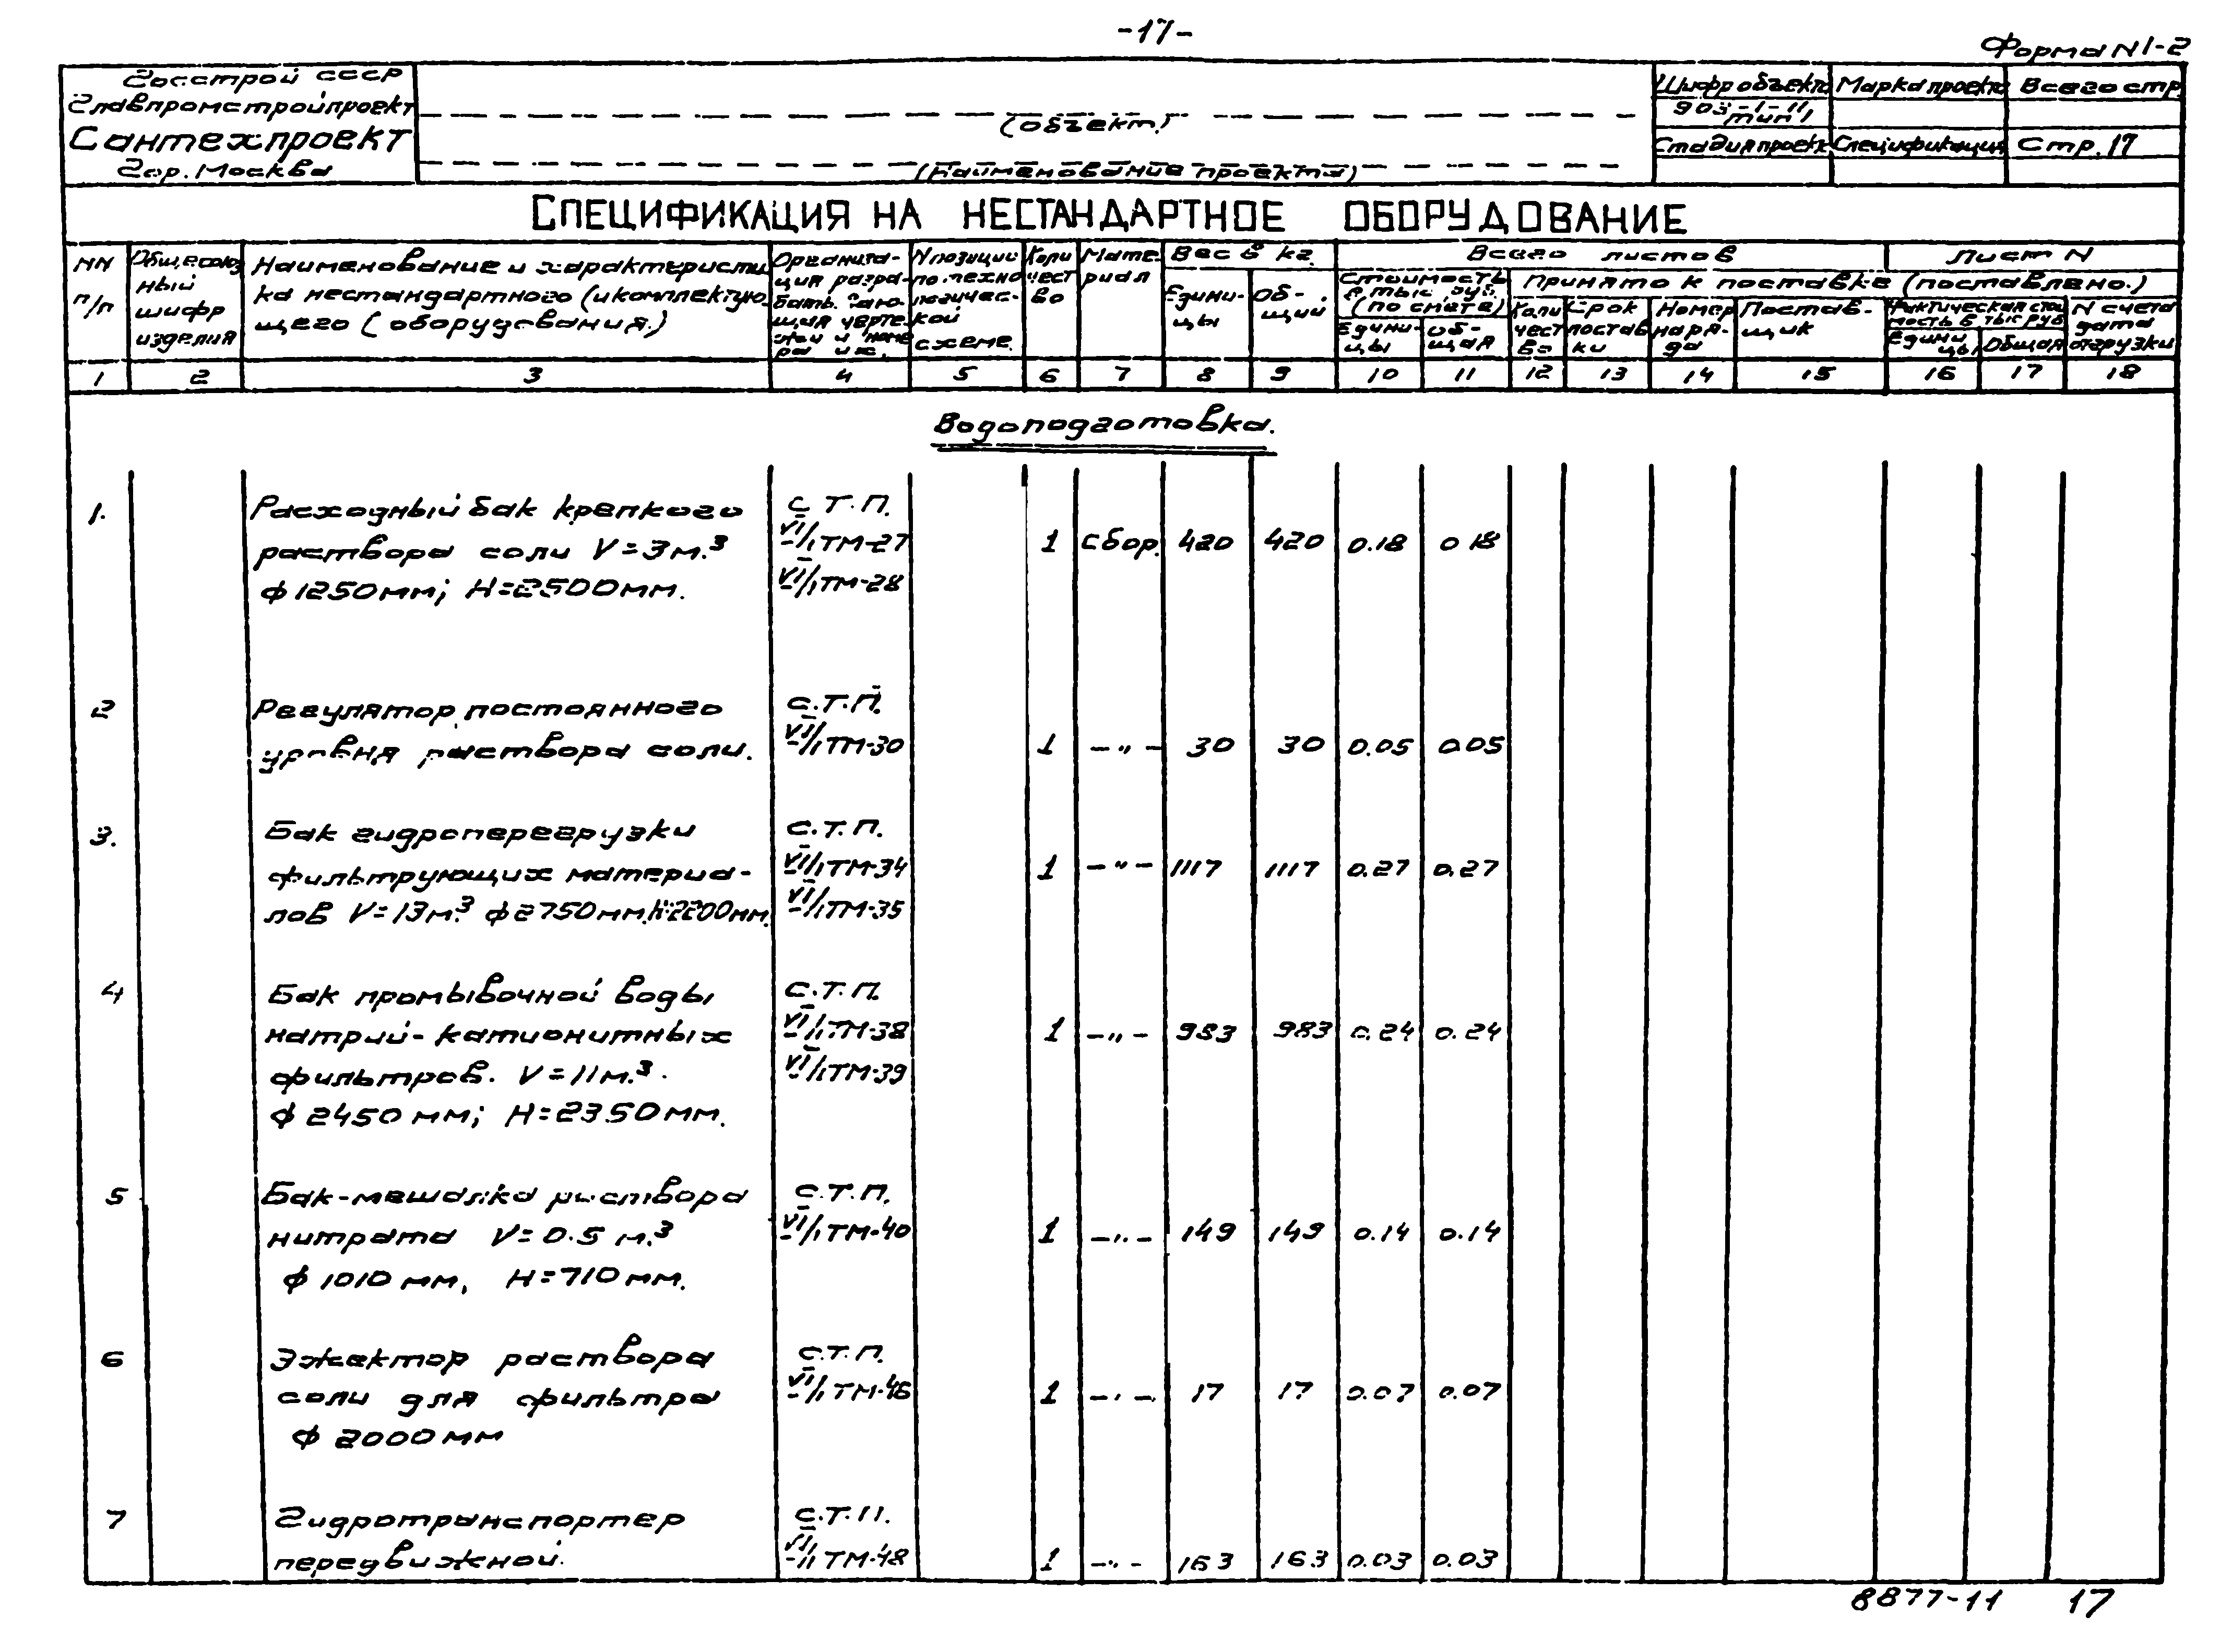 -17-
Форма N1-2
Госстрой СССР
Главпромстройпроект
Сантехпроект
гор. Москва
(объект)
(Наименование проекта)
Шифр объекта Марка проекта Всего стр.
903-1-11
тип I
Стадия проекта Спецификация Стр. 17
СПЕЦИФИКАЦИЯ НА НЕСТАНДАРТНОЕ ОБОРУДОВАНИЕ
NN п/п
Общесоюзный шифр изделия
Наименование и характеристика нестандартного (и комплектующего (оборудования.)
Организация разрабатывающая чертежи и номера их.
N позиции по технологической схеме.
Количество
Материал
Вес в кг.
Единицы
Общий
Всего листов
Лист N
Стоимость в тыс. руб. (по смете)
Единицы
Общая
Принято к поставке (поставлено.)
Количество
Срок поставки
Номер наряда
Поставщик
Фактическая стоимость в тыс руб
Единицы
Общая
N счета дата отгрузки
1 2 3 4 5 6 7 8 9 10 11 12 13 14 15 16 17 18
Водоподготовка.
1. Расходный бак крепкого С Т.П.
раствора соли V=3м.³ VI/1 ТМ-27 1 сбор. 420 420 0.18 0 18
ф1250мм; Н=2500мм. VI/1 ТМ-28
2 Регулятор постоянного С.Т.П.
уровня раствора соли. VI/1 ТМ-30 1 -"- 30 30 0.05 0.05
3. Бак гидроперегрузки С.Т.П.
фильтрующих материа- VI/1 ТМ-34 1 -"- 1117 1117 0.27 0.27
лов V=13м³ ф2750мм. h=2200мм. VI/1 ТМ-35
4 Бак промывочной воды С.Т.П.
натрий-катионитных VI/1 ТМ-38 1 -"- 983 983 0.24 0.24
фильтров. V=11м.³. VI/1 ТМ-39
ф 2450 мм; Н=2350мм.
5 Бак-мешалка раствора С.Т.П.
нитрата V=0.5 м.³ VI/1 ТМ-40 1 -"- 149 149 0.14 0.14
ф 1010 мм, Н=710мм.
6 Эжектор раствора С.Т.П.
соли для фильтра VI/1 ТМ-46 1 -"- 17 17 0.07 0.07
ф 2000мм
7 Гидротранспортер С.Т.П.
передвижной. VI/1 ТМ-48 1 -"- 163 163 0.03 0.03
8877-11 17